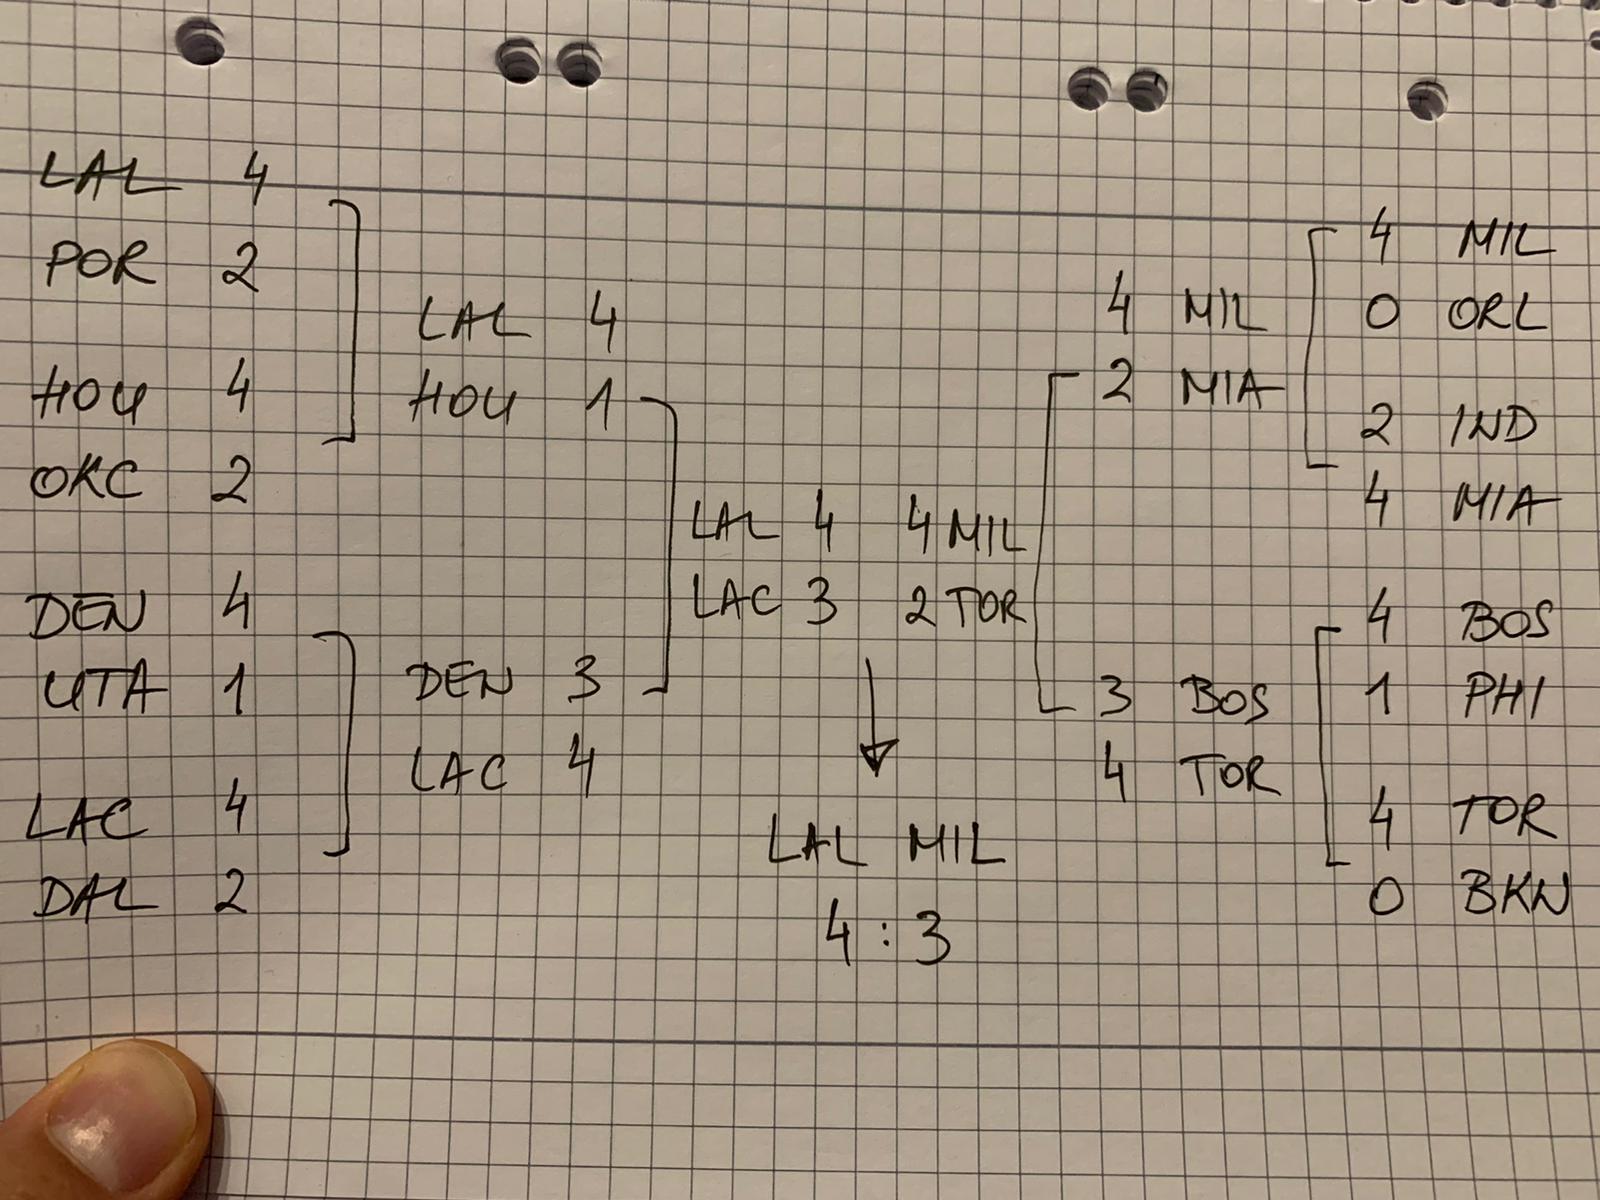 LAL 4
POR 2
HOU 4
OKC 2
DEN 4
UTA 1
LAC 4
DAL 2
LAL 4
HOU 1
DEN 3
LAC 4
LAL 4 4 MIL
LAC 3 2 TOR
LAL MIL
4 : 3
4 MIL
2 MIA
3 BOS
4 TOR
4 MIL
0 ORL
2 IND
4 MIA
4 BOS
1 PHI
4 TOR
0 BKN